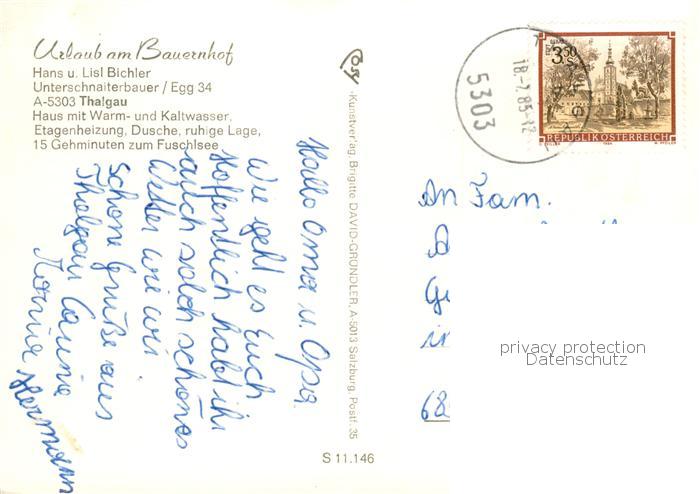 Urlaub am Bauernhof
Hans u. Lisl Bichler
Unterschnaiterbauer / Egg 34
A-5303 Thalgau
Haus mit Warm- und Kaltwasser,
Etagenheizung, Dusche, ruhige Lage,
15 Gehminuten zum Fuschlsee
Hallo Oma u. Opa.
Wie geht es Euch
Hoffentlich habt ihr
auch solch schönes
Wetter wie wir
Schöne Grüße aus
Thalgau
Hermann
Cosy
-Kunstverlag, Brigitte DAVID-GRÜNDLER, A-5013 Salzburg, Postf. 35
S 11.146
5303
18.-7.85-12
3.50
REPUBLIK ÖSTERREICH
1984
An Fam.
in
68
privacy protection
Datenschutz